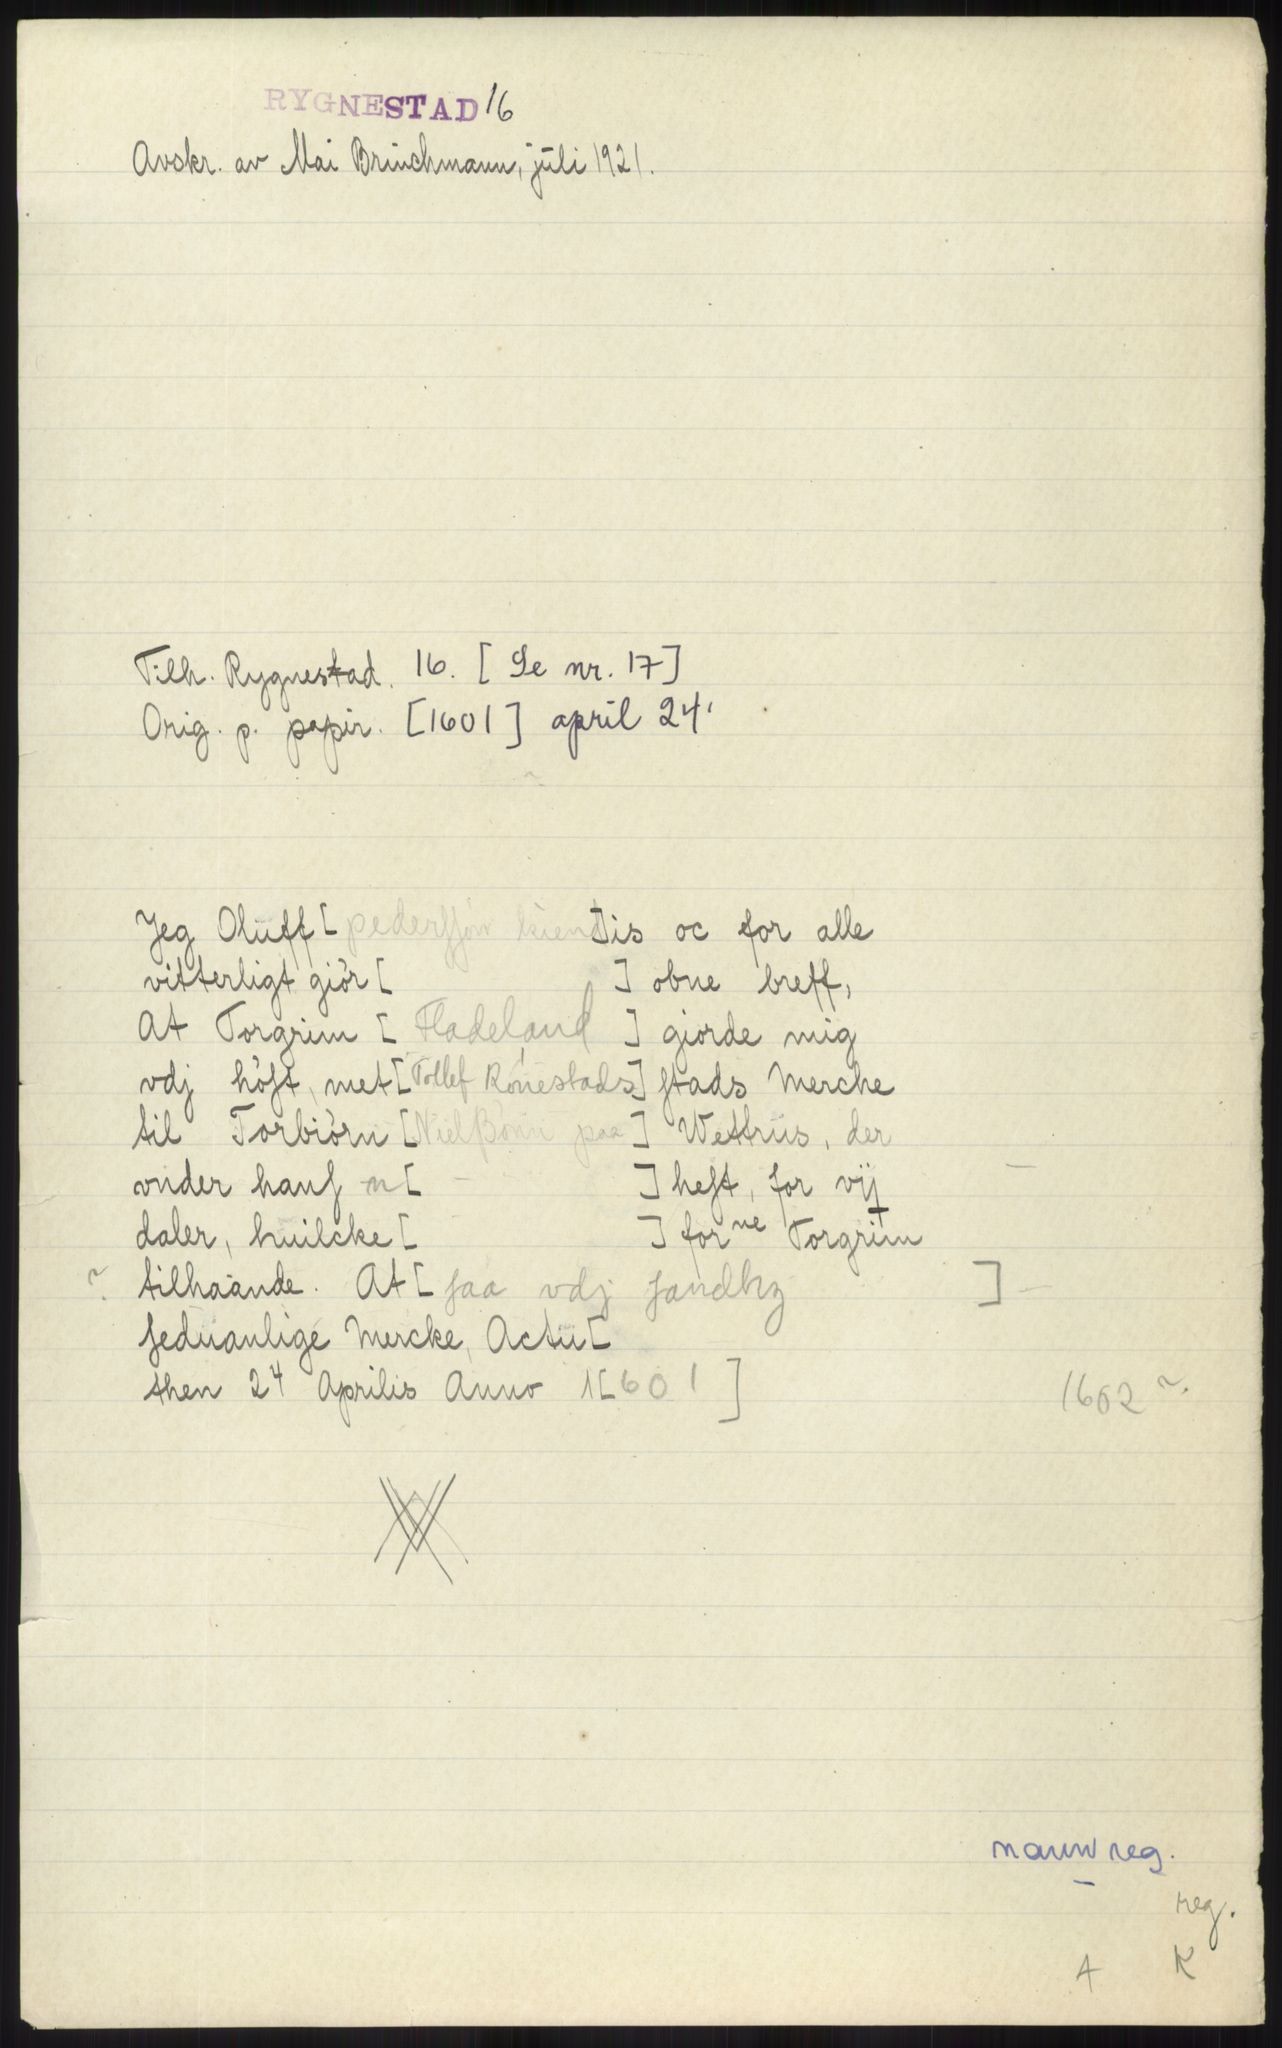 RYGNESTAD 16
Avskr. av Mai Brinchmann, juli 1921.
Tilh. Rygnestad. 16. [ Se nr. 17]
Orig. p. papir. [1601] april 24.
Jeg Olüff [pederssøn kien]dis oc for alle
vitterligt giör [ ] obne breff,
At Torgrim [ Fladeland ] giorde mig
vdj höst, met [Tollef Rönestads] stads Merche
til Torbiörn [Nielßönn paa] Wettrüs, der
vnder hans n[ - ] hest, for vij
daler, huilcke [ ] for ne Torgrim
? tilhaande. At [ saa vdj sandhz ] -
seduanlige Mercke, Actü[
then 24 Aprilis Anno 1[601]
1602 ?
navnreg.
reg.
A K